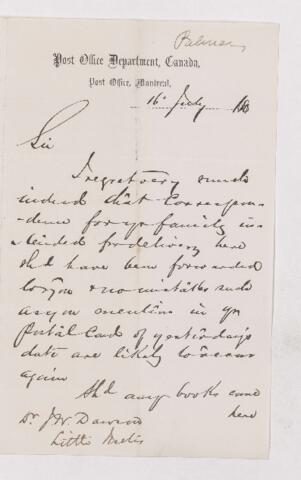 Palmer
Post Office Department, Canada,
Post Office, Montreal,
16 July 18
Sir
I regret very much
indeed that Correspon-
-dence for yr family in-
tended for delivery here
shd have been forwarded
to you & no mistakes such
as you mention in yr
Postal Card of yesterday's
date are likely to occur
again
Shd any books come
here
Dr. J.W. Dawson
Little Metis